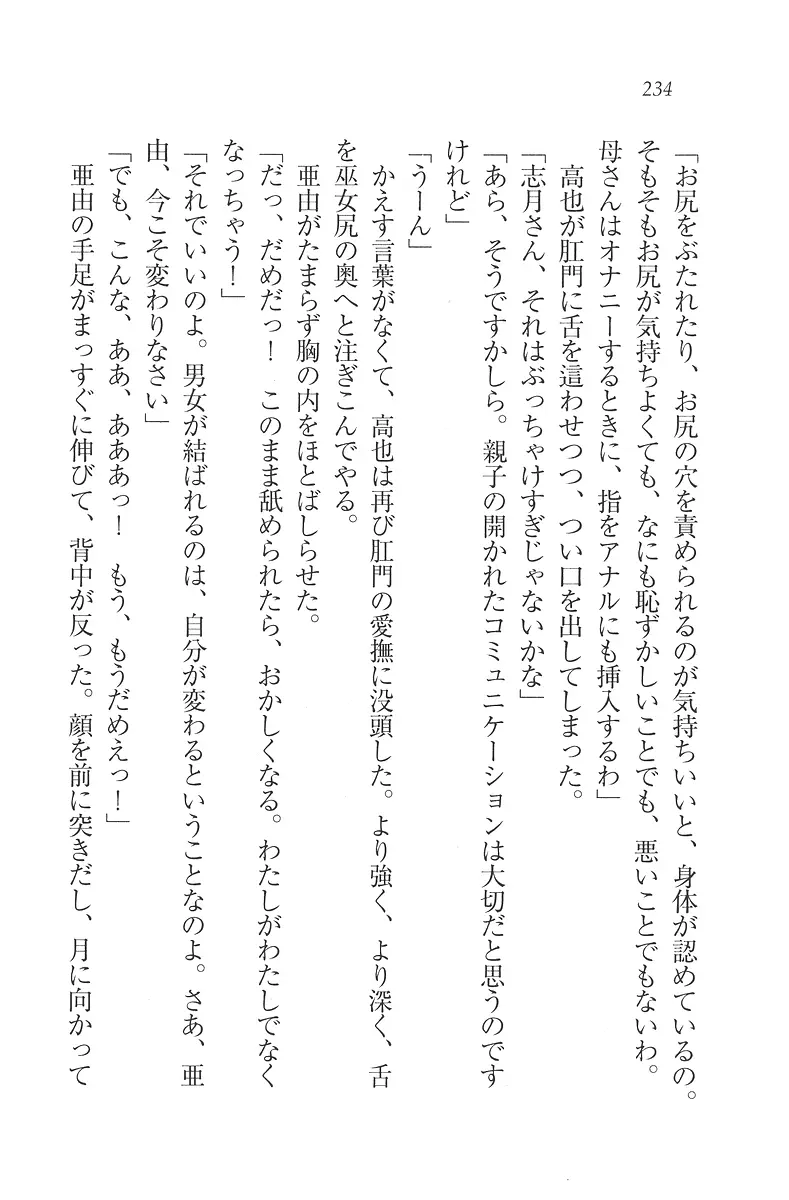 234
「お尻をぶたれたり、お尻の穴を責められるのが気持ちいいと、身体が認めているの。
そもそもお尻が気持ちよくても、なにも恥ずかしいことでも、悪いことでもないわ。
母さんはオナニーするときに、指をアナルにも挿入するわ」
高也が肛門に舌を這わせつつ、つい口を出してしまった。
「志月さん、それはぶっちゃけすぎじゃないかな」
「あら、そうですかしら。親子の開かれたコミュニケーションは大切だと思うのです
けれど」
「うーん」
かえす言葉がなくて、高也は再び肛門の愛撫に没頭した。より強く、より深く、舌
を巫女尻の奥へと注ぎこんでやる。
亜由がたまらず胸の内をほとばしらせた。
「だっ、だめだっ！　このまま舐められたら、おかしくなる。わたしがわたしでなく
なっちゃう！」
「それでいいのよ。男女が結ばれるのは、自分が変わるということなのよ。さあ、亜
由、今こそ変わりなさい」
「でも、こんな、ああ、あああっ！　もう、もうだめえっ！」
亜由の手足がまっすぐに伸びて、背中が反った。顔を前に突きだし、月に向かって